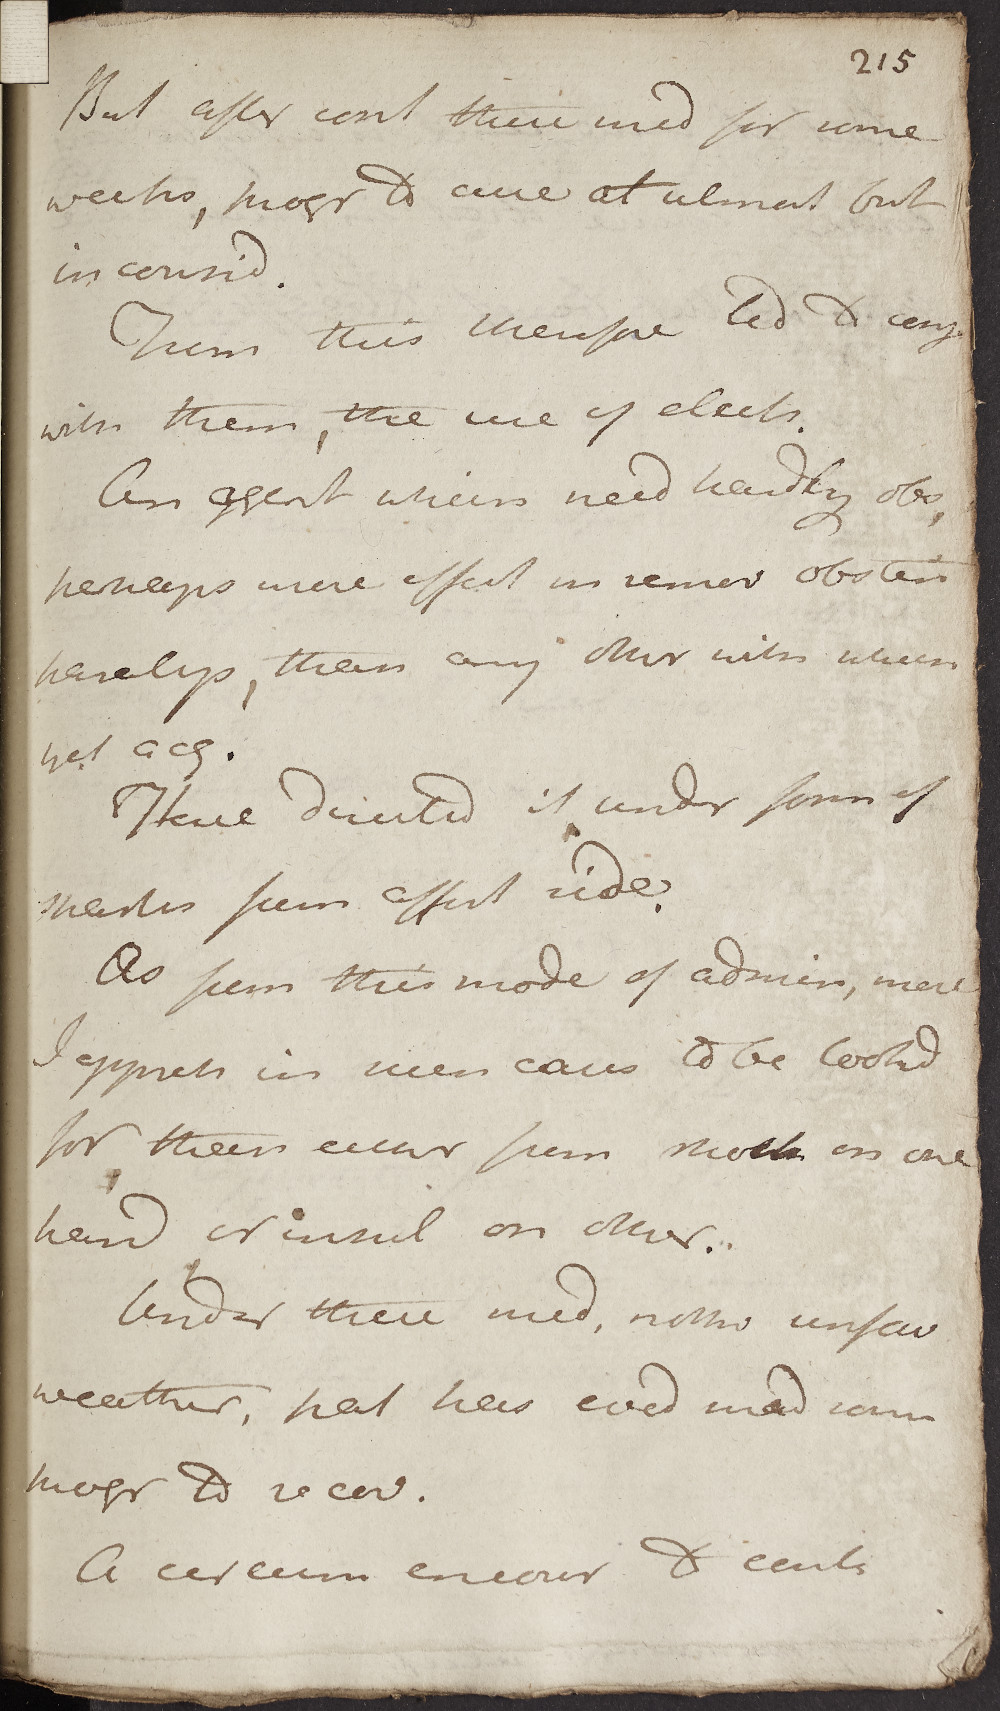 215
But after cont these med for some
weeks, progr to cure at utmost but
inconsid.
From this therefore led to conj
with them, the use of elect.
An agent which need hardly obs,
perhaps more effect in remov obstin
paralys, than any other with which
yet acq.
Have directed it under form of
sparks from affect side.
As from this mode of admin, more
I appreh in such cases to be lookd
for than either from shock on one
hand or insul on other.
Under these med, notw unfav
weather, pat has evid mad som
progr to recov.
A circum encour to cont